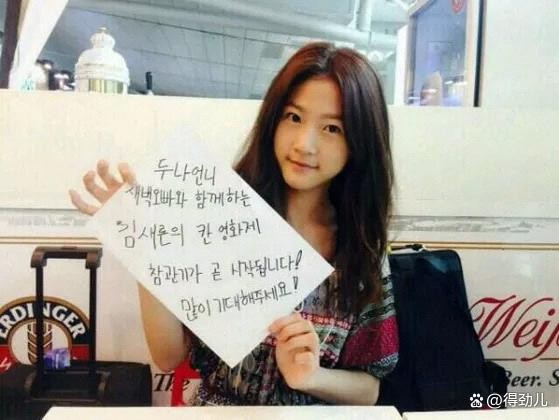 두나언니
새벽오빠와 함께하는
김새론의 칸 영화제
참관기가 곧 시작됩니다!
많이 기대해주세요!
ERDINGER
The
Beer. S
@得劲儿